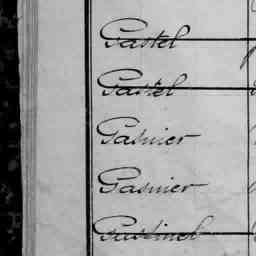 Gastel
Gastel
Gasnier
Gasnier
Gastinel